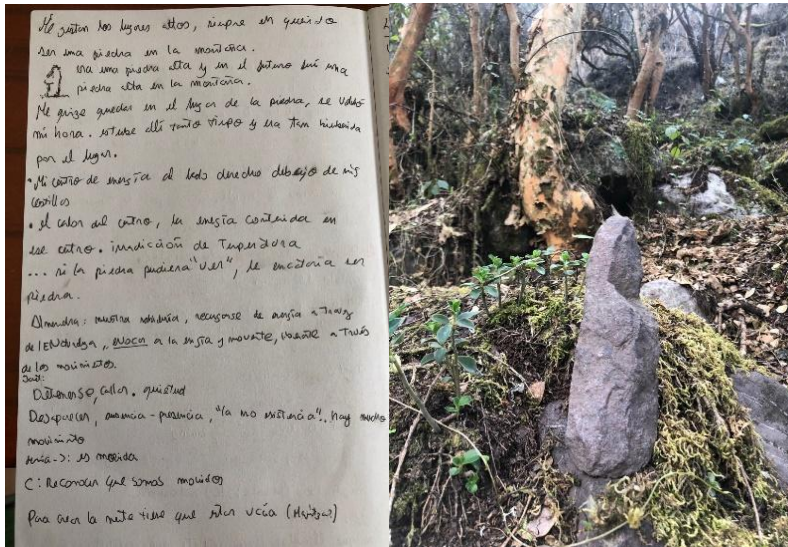 Me gustan los lugares altos, siempre en querido
ser una piedra en la montaña.
era una piedra alta y en el futuro fuí una
piedra alta en la montaña.
Me quize quedar en el lugar de la piedra, se volvió
mi hora. estube allí tanto tiempo y era tan bienvenida
por el lugar.
• Mi centro de energía al lado derecho debajo de mis
costillos
• el calor del centro, la energía contenida en
ese centro. irradiación de Temperatura
... si la piedra pudiera "ver", le encataría ser
piedra.
Almendra: nuestra sabiduría, recargarse de energía a Travez
de , evocar a la energía y moverte, a Través
de los movimientos.
Detenerse, callar. quietud
Desaparecer, ausencia - presencia, "la no existencia".. hay mucho
movimiento
es movida
C: Reconocer que somos movidos
Para crear la mente tiene que estar vacía